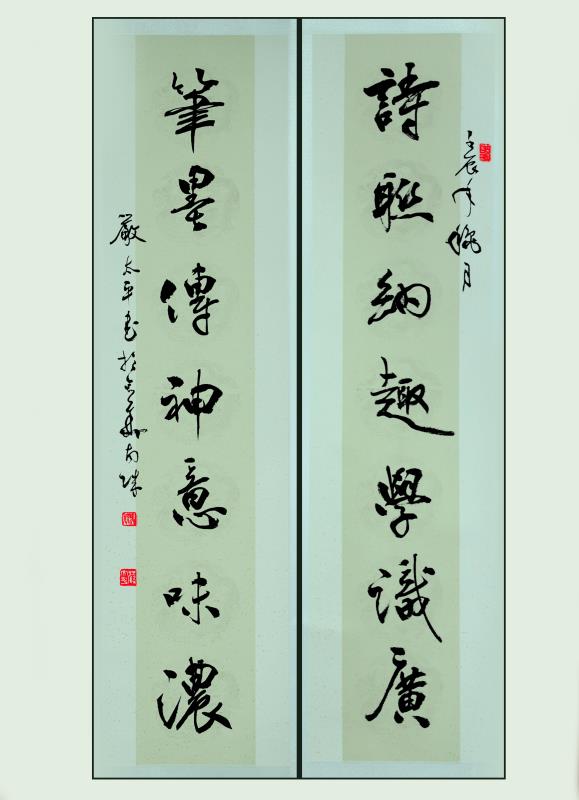 詩聯納趣學識廣
壬辰年桃月
筆墨傳神意味濃
嚴太平書於